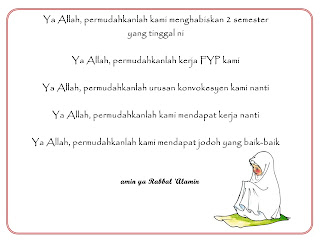 Ya Allah, permudahkanlah kami menghabiskan 2 semester
yang tinggal ni
Ya Allah, permudahkanlah kerja FYP kami
Ya Allah, permudahkanlah urusan konvokesyen kami nanti
Ya Allah, permudahkanlah kami mendapat kerja nanti
Ya Allah, permudahkanlah kami mendapat jodoh yang baik-baik
amin ya Rabbal 'Alamin